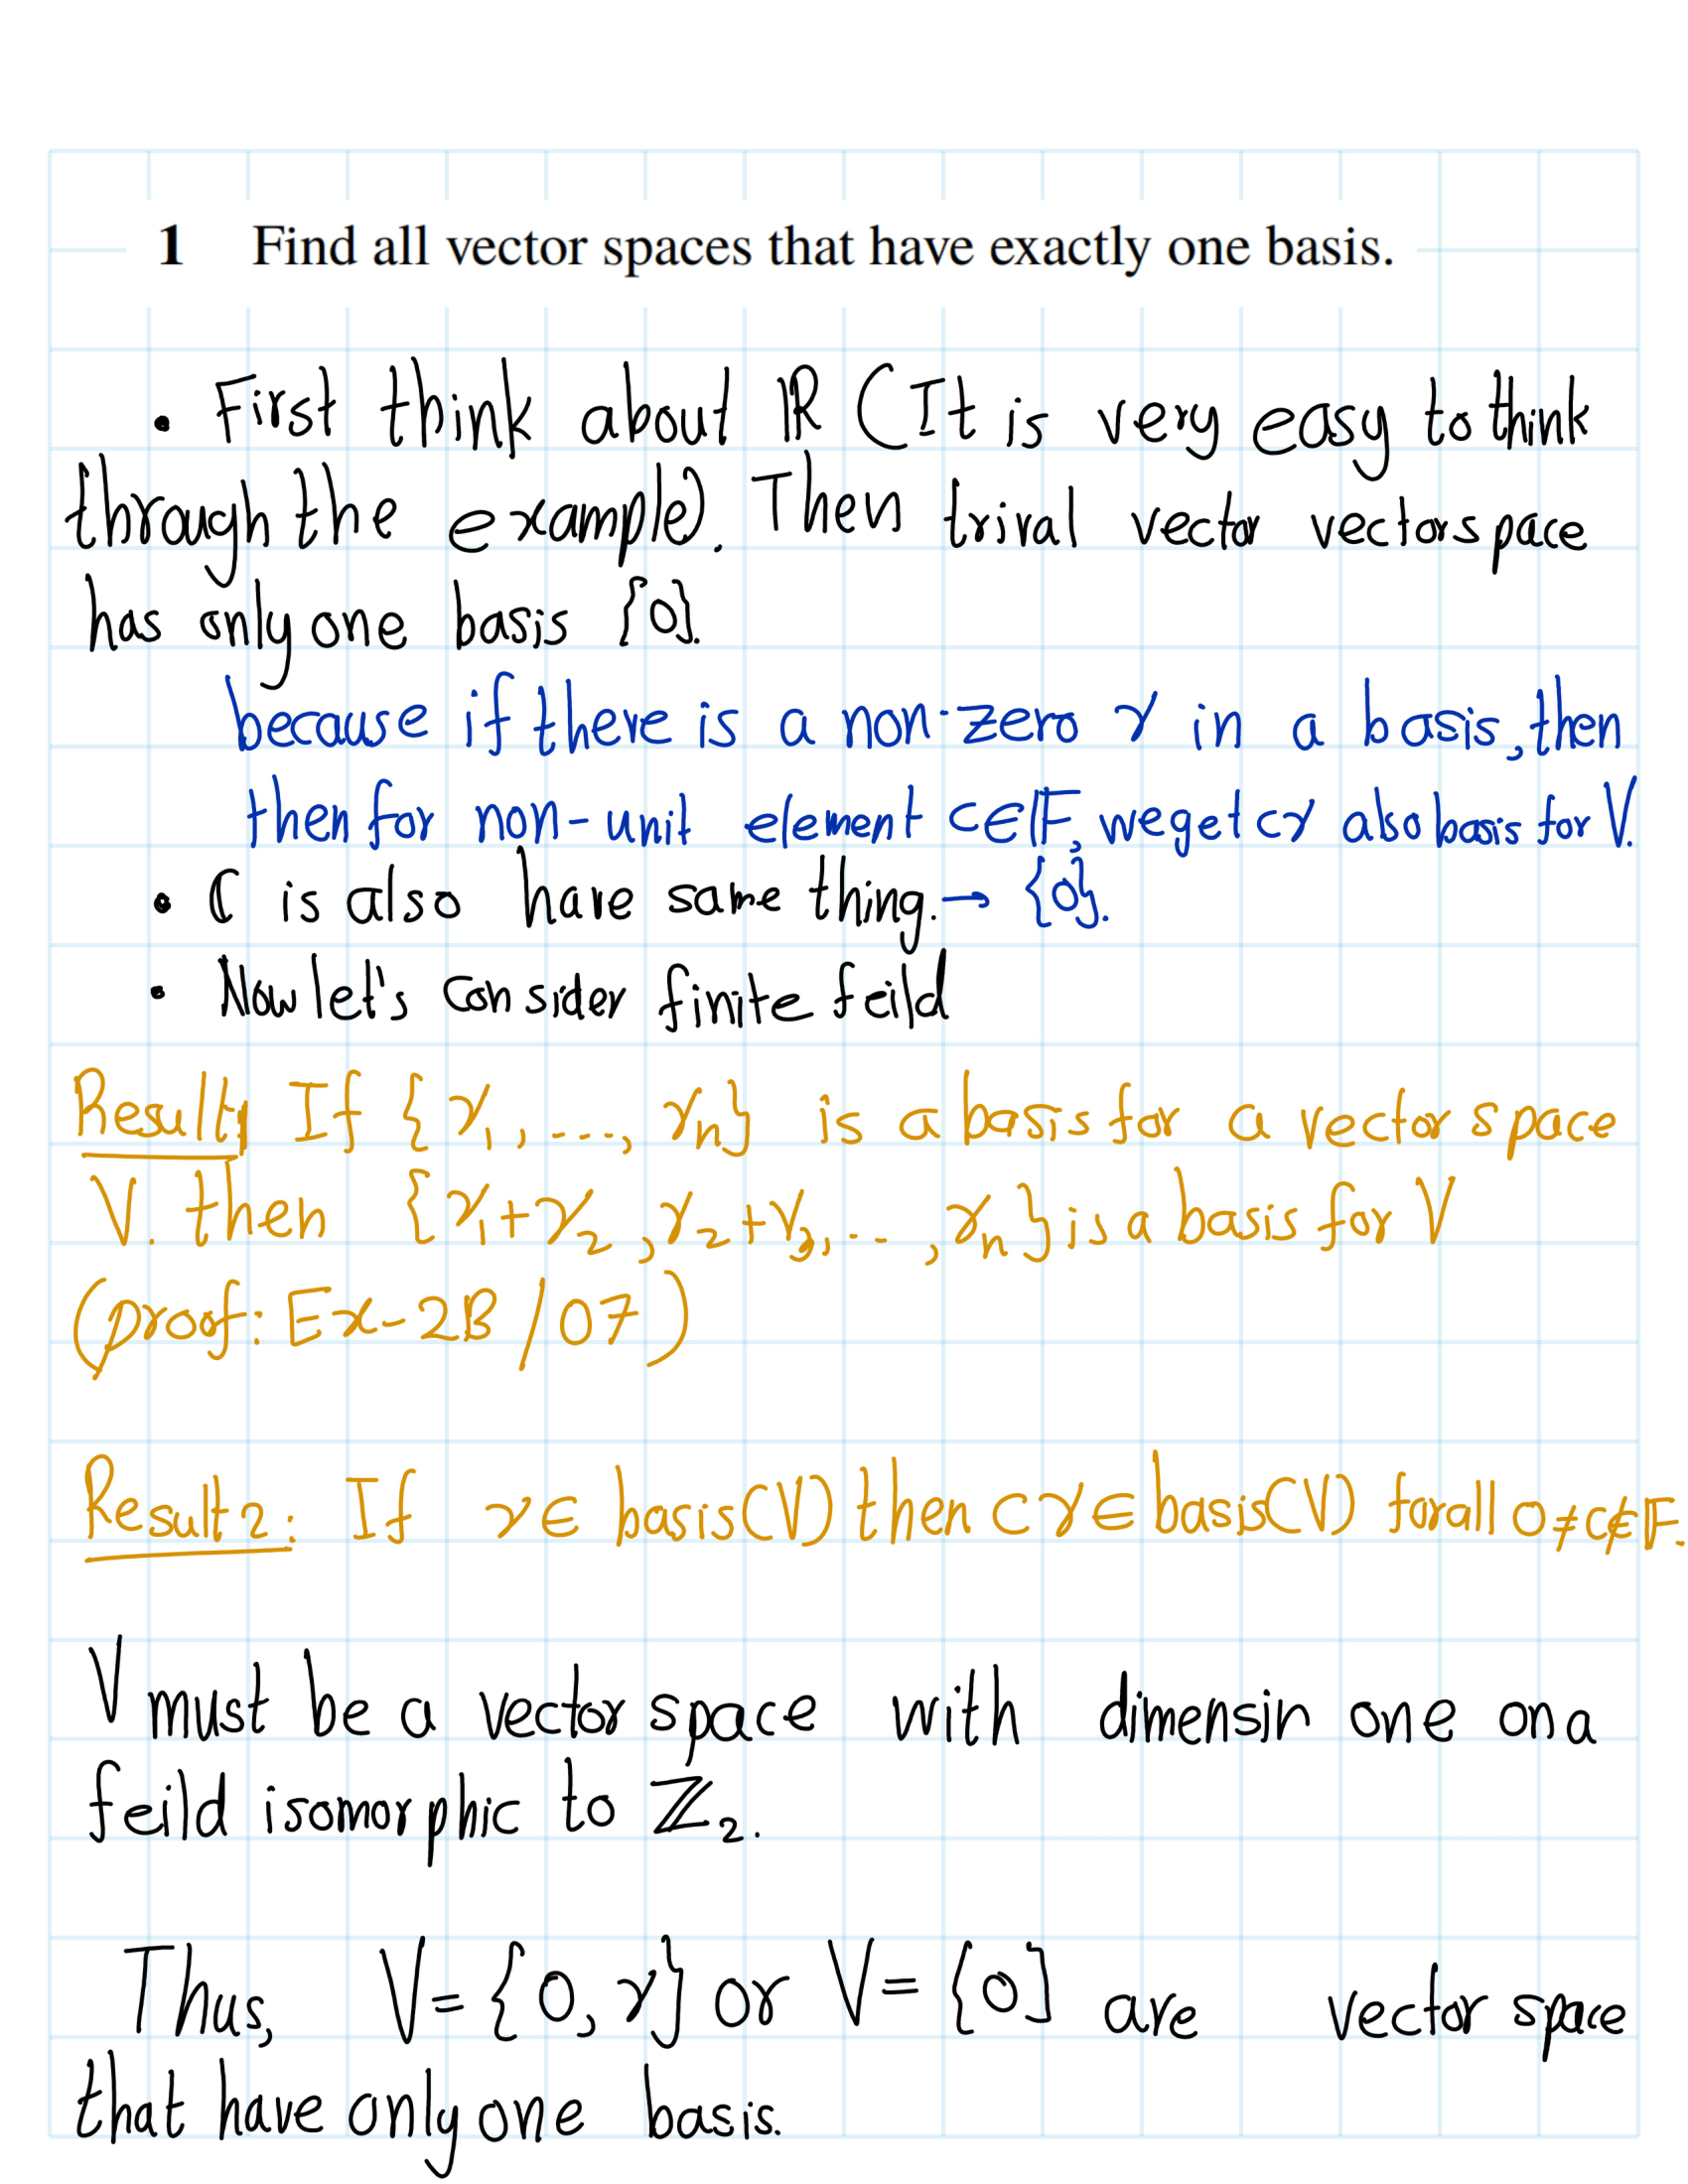 1 Find all vector spaces that have exactly one basis.
• First think about ℝ (It is very easy to think
through the example). Then trival vector vectorspace
has only one basis {0}.
because if there is a non-zero x in a basis, then
then for non-unit element c∈𝔽, we get cx also basis for V.
• ℂ is also have same thing. → {0}.
• Now let's consider finite feild
Result1 If {x₁, ..., xₙ} is a basis for a vector space
V. then {x₁+x₂, x₂+x₃, ..., xₙ} is a basis for V
(proof: Ex-2B/07)
Result 2: If x ∈ basis(V) then cx ∈ basis(V) for all 0≠c∉𝔽.
V must be a vector space with dimensin one on a
feild isomorphic to ℤ₂.
Thus, V={0,x} or V={0} are vector space
that have only one basis.